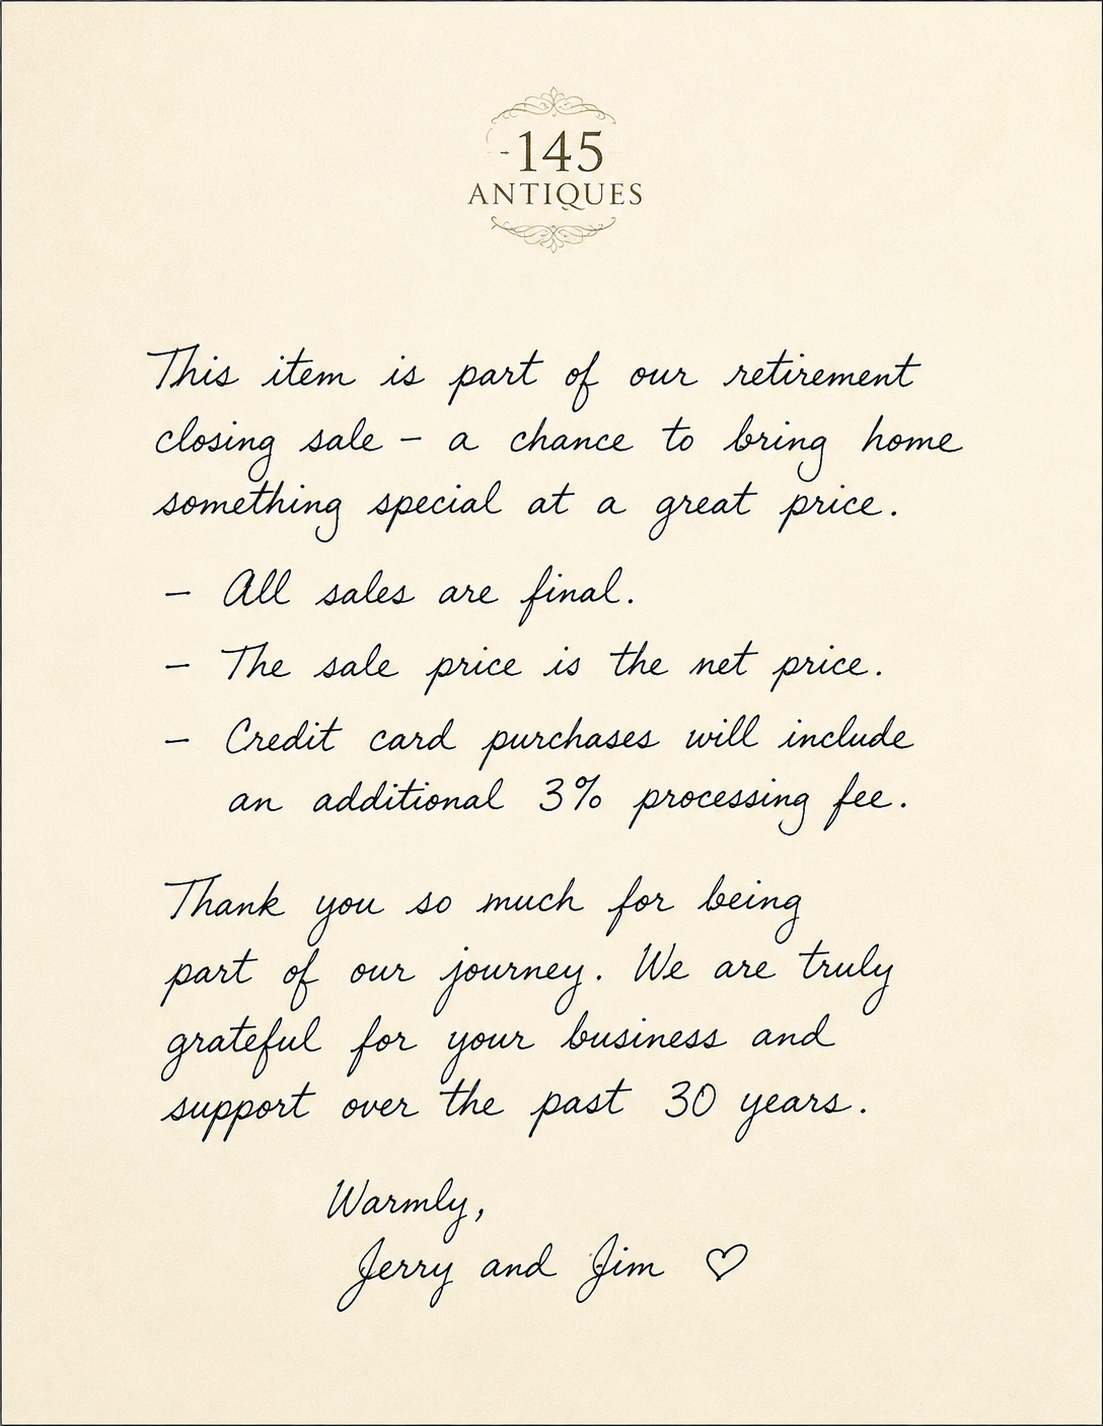 -145
ANTIQUES
This item is part of our retirement
closing sale – a chance to bring home
something special at a great price.
– All sales are final.
– The sale price is the net price.
– Credit card purchases will include
an additional 3% processing fee.
Thank you so much for being
part of our journey. We are truly
grateful for your business and
support over the past 30 years.
Warmly,
Jerry and Jim ♡